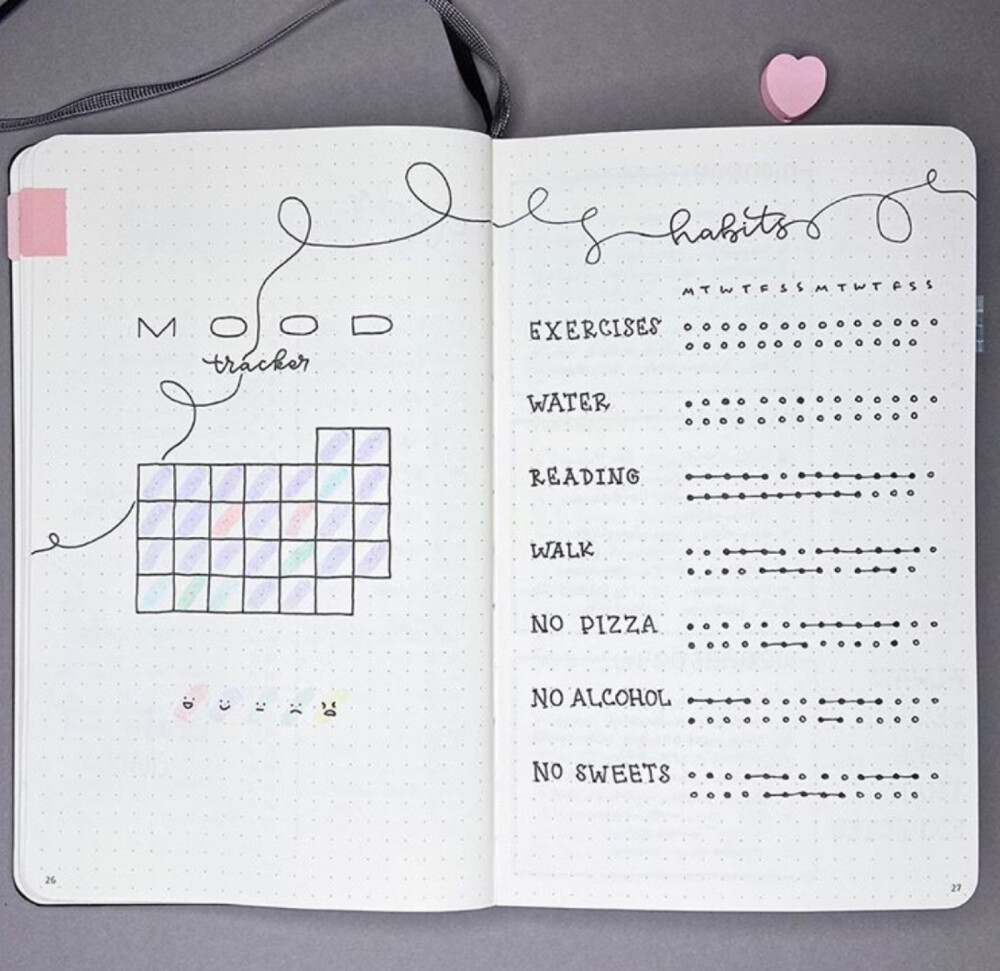 MOOD
tracker
26
habits
M T W T F S S M T W T F S S
EXERCISES
WATER
READING
WALK
NO PIZZA
NO ALCOHOL
NO SWEETS
27